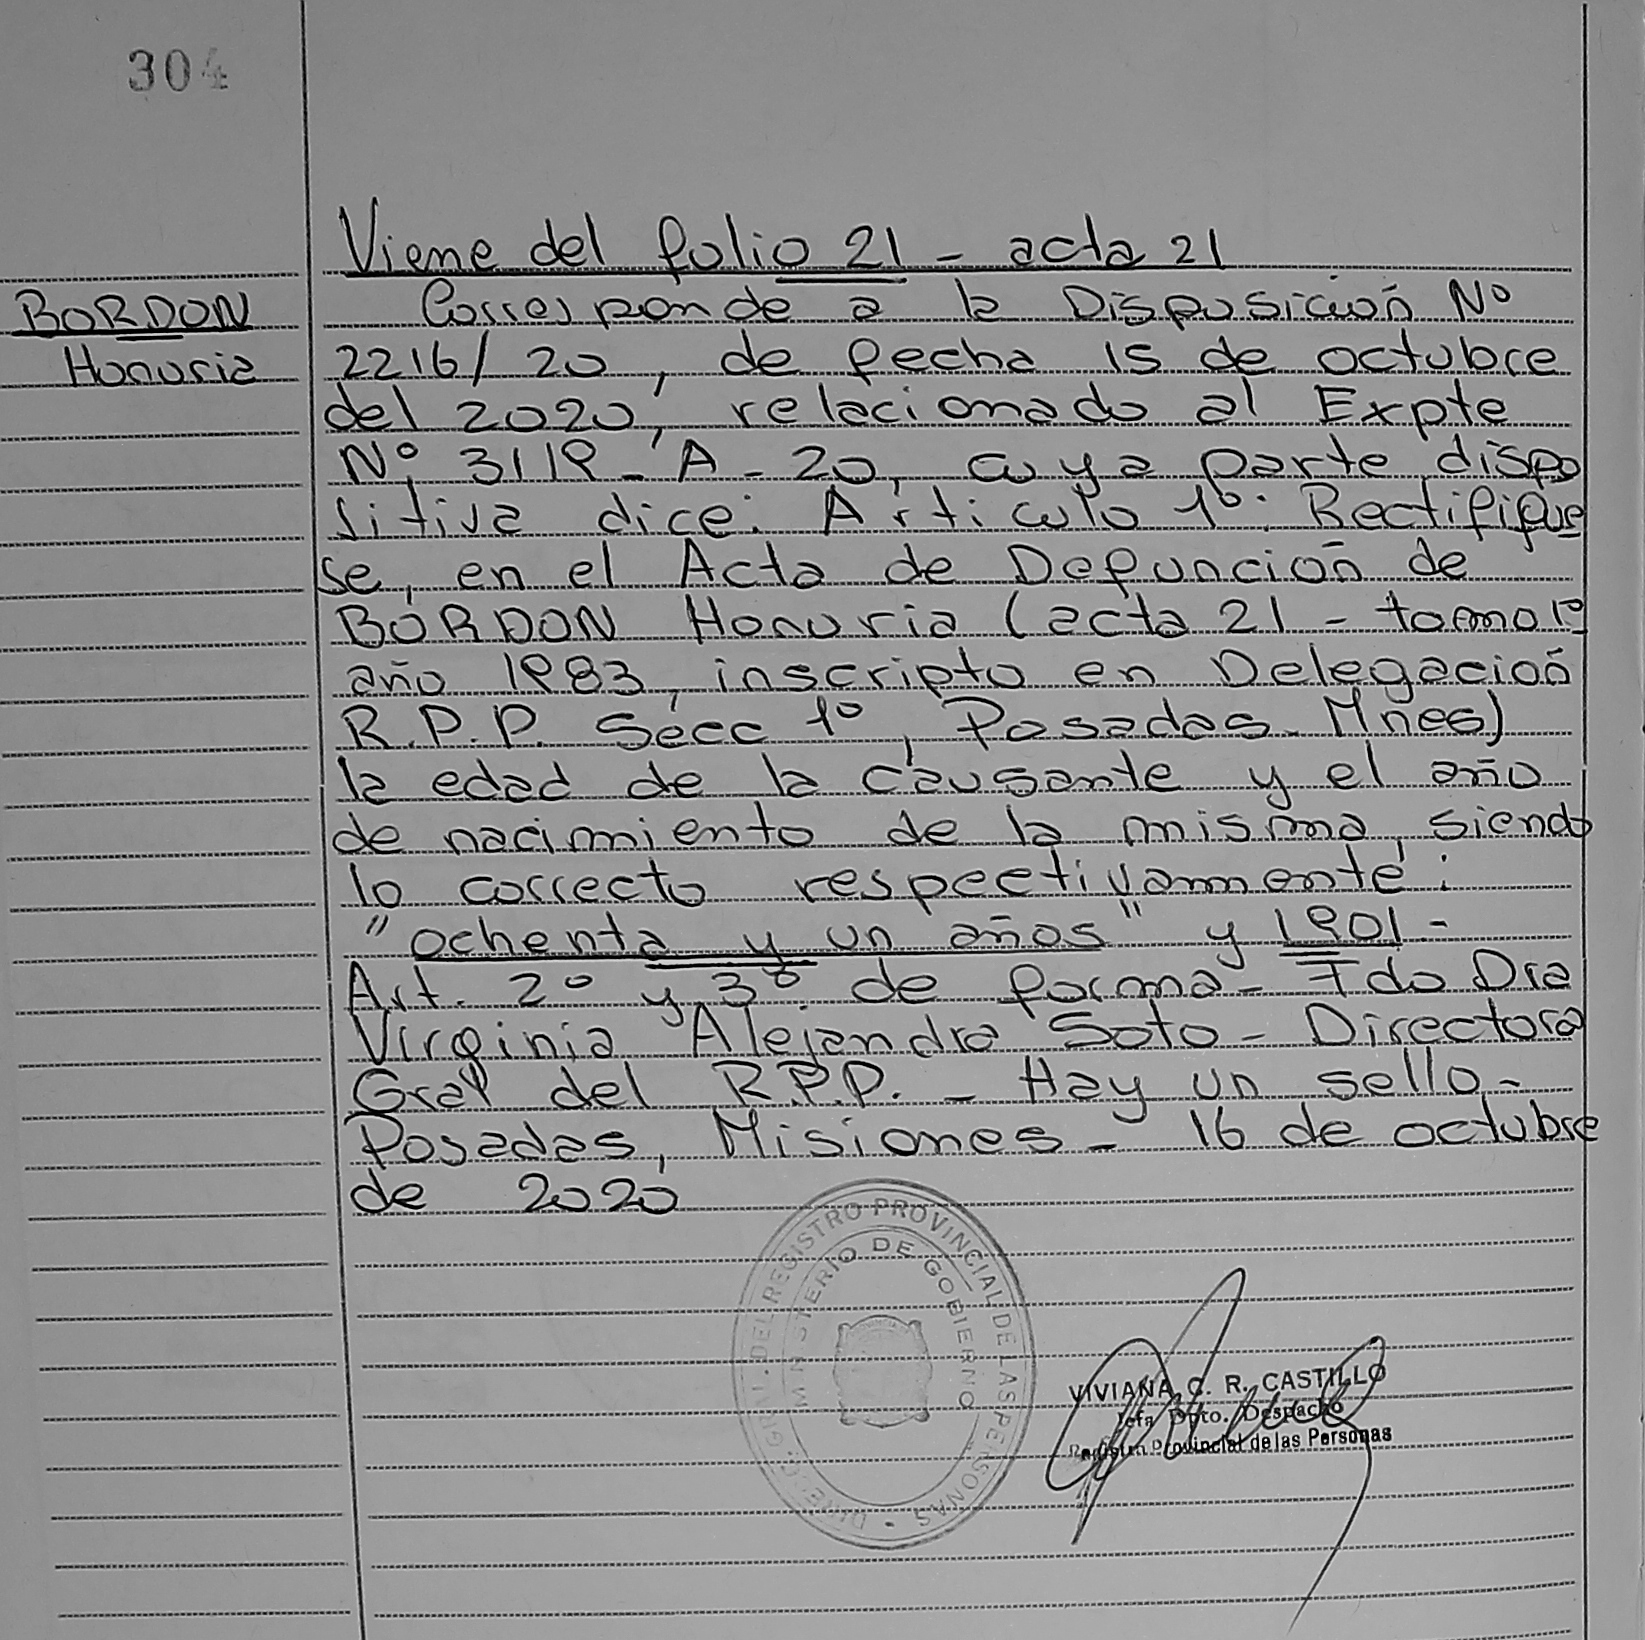 304
Viene del folio 21 - acta 21
BORDON
Honoria
Corresponde a la Disposición Nº
2216/20, de fecha 15 de octubre
del 2020, relacionado al Expte
Nº 3119-A-20, cuya parte dispo
sitiva dice: Artículo 1º: Rectifíque
se, en el Acta de Defunción de
BORDON Honoria (acta 21 - tomo 1º
año 1983, inscripto en Delegación
R.P.P. Secc 1º, Posadas - Mnes)
la edad de la causante y el año
de nacimiento de la misma, siendo
lo correcto respectivamente:
"ochenta y un años" y 1901 -
Art. 2º y 3º de forma - Fdo Dra
Virginia Alejandra Soto - Directora
Gral del R.P.P. - Hay un sello -
Posadas, Misiones - 16 de octubre
de 2020
DIREC. GRAL. DEL REGISTRO PROVINCIAL DE LAS PERSONAS
MINISTERIO DE GOBIERNO
VIVIANA C. R. CASTILLO
Jefa Dpto. Despacho
Registro Provincial de las Personas